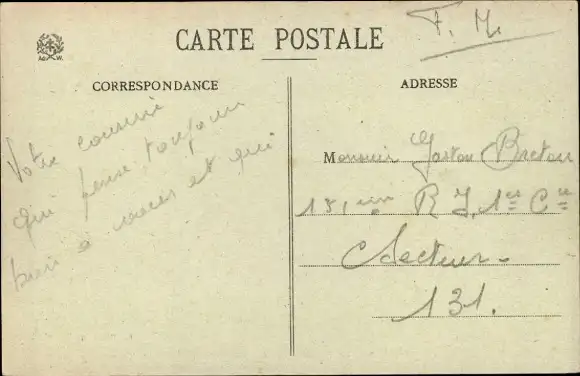 F. M.
CARTE POSTALE
CORRESPONDANCE
Votre cousine
qui pense toujours
bien à vous et qui
ADRESSE
Monsieur Gaston Breton
151 ème R I, 1ère Cie
Secteur
131.